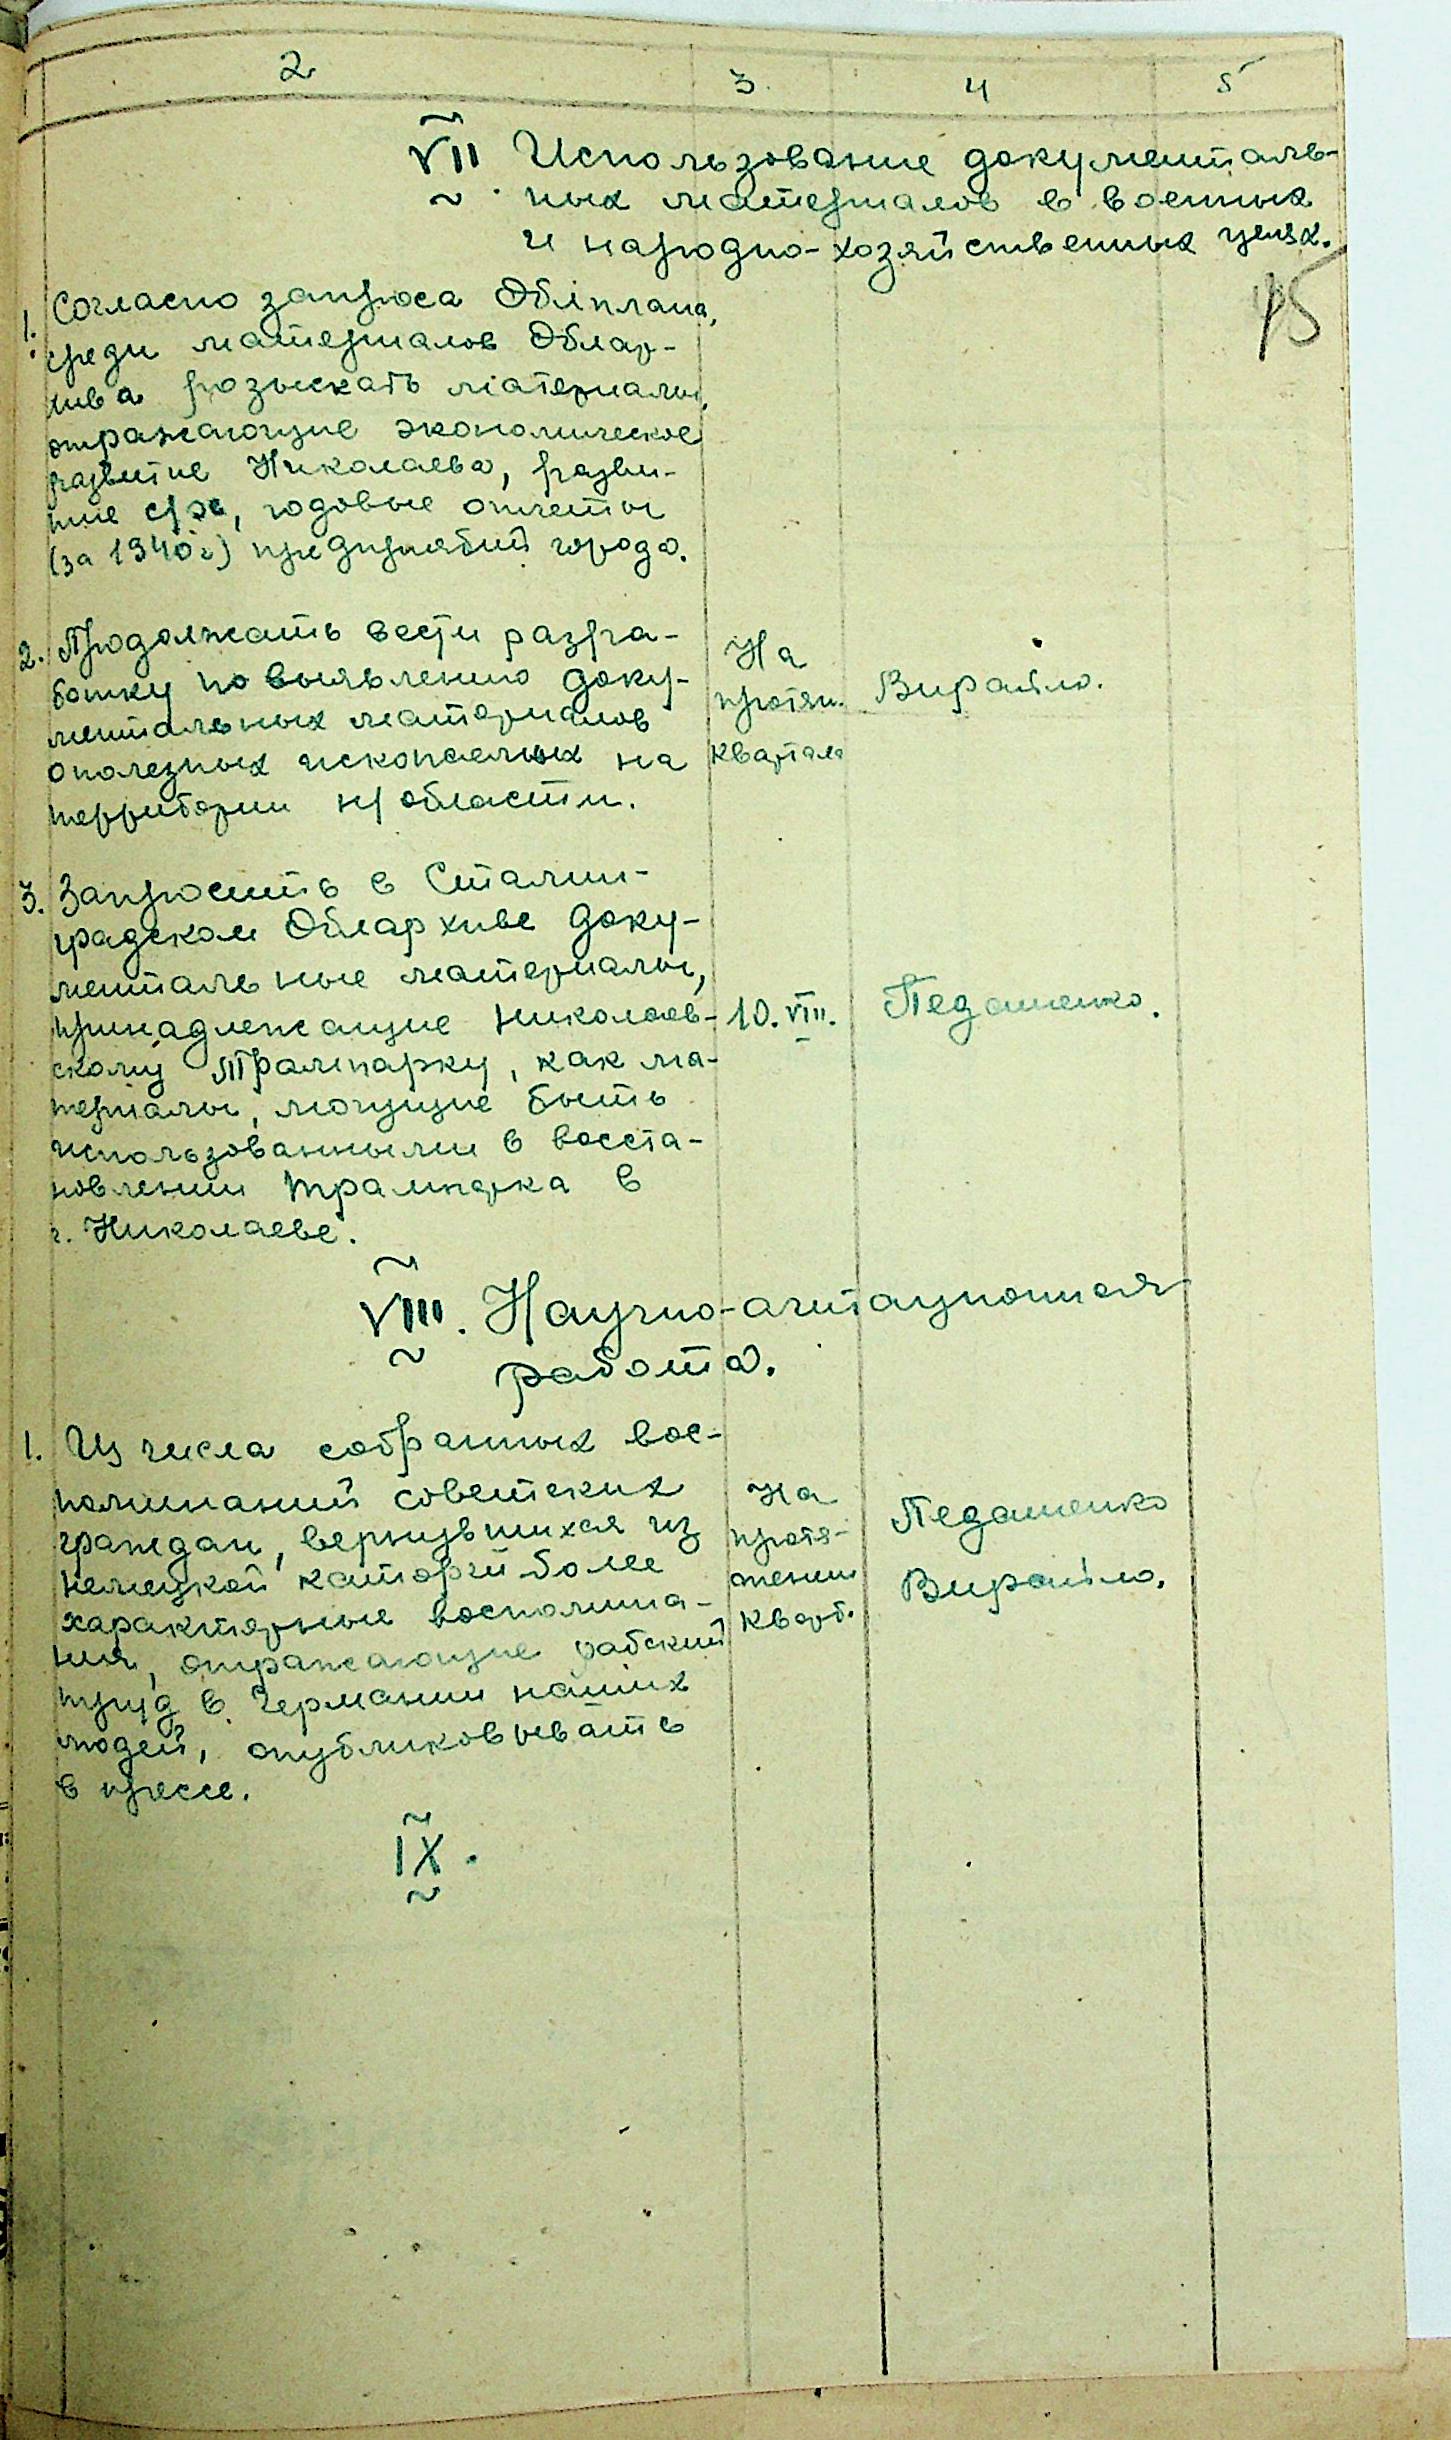 2 3 4 5
VII Использование документаль-
ных материалов в военных
и народно-хозяйственных целях.
45
1. Согласно запроса Облплана,
среди материалов Облар-
хива розыскать материалы,
отражающие экономическое
развитие Николаева, разви-
тие с/х, годовые отчеты
(за 1940 г) предприятий города.
2. Продолжать вести разра-
ботку по выявлению доку-
ментальных материалов
о полезных ископаемых на
территории н/области.
На
протяж.
квартала
Вирайло.
3. Запросить в Сталин-
градском Облархиве доку-
ментальные материалы,
принадлежащие Николаев-
скому Трампарку, как ма-
териалы, могущие быть
использованными в восста-
новлении трампарка в
г. Николаеве.
10. VIII.
Педашенко.
VIII. Научно-агитационная
работа.
1. Из числа собранных вос-
поминаний советских
граждан, вернувшихся из
немецкой каторги более
характерные воспомина-
ния, отражающие рабский
труд в Германии наших
людей, опубликовывать
в прессе.
На
протя-
жении
кварт.
Педашенко
Вирайло.
IX.